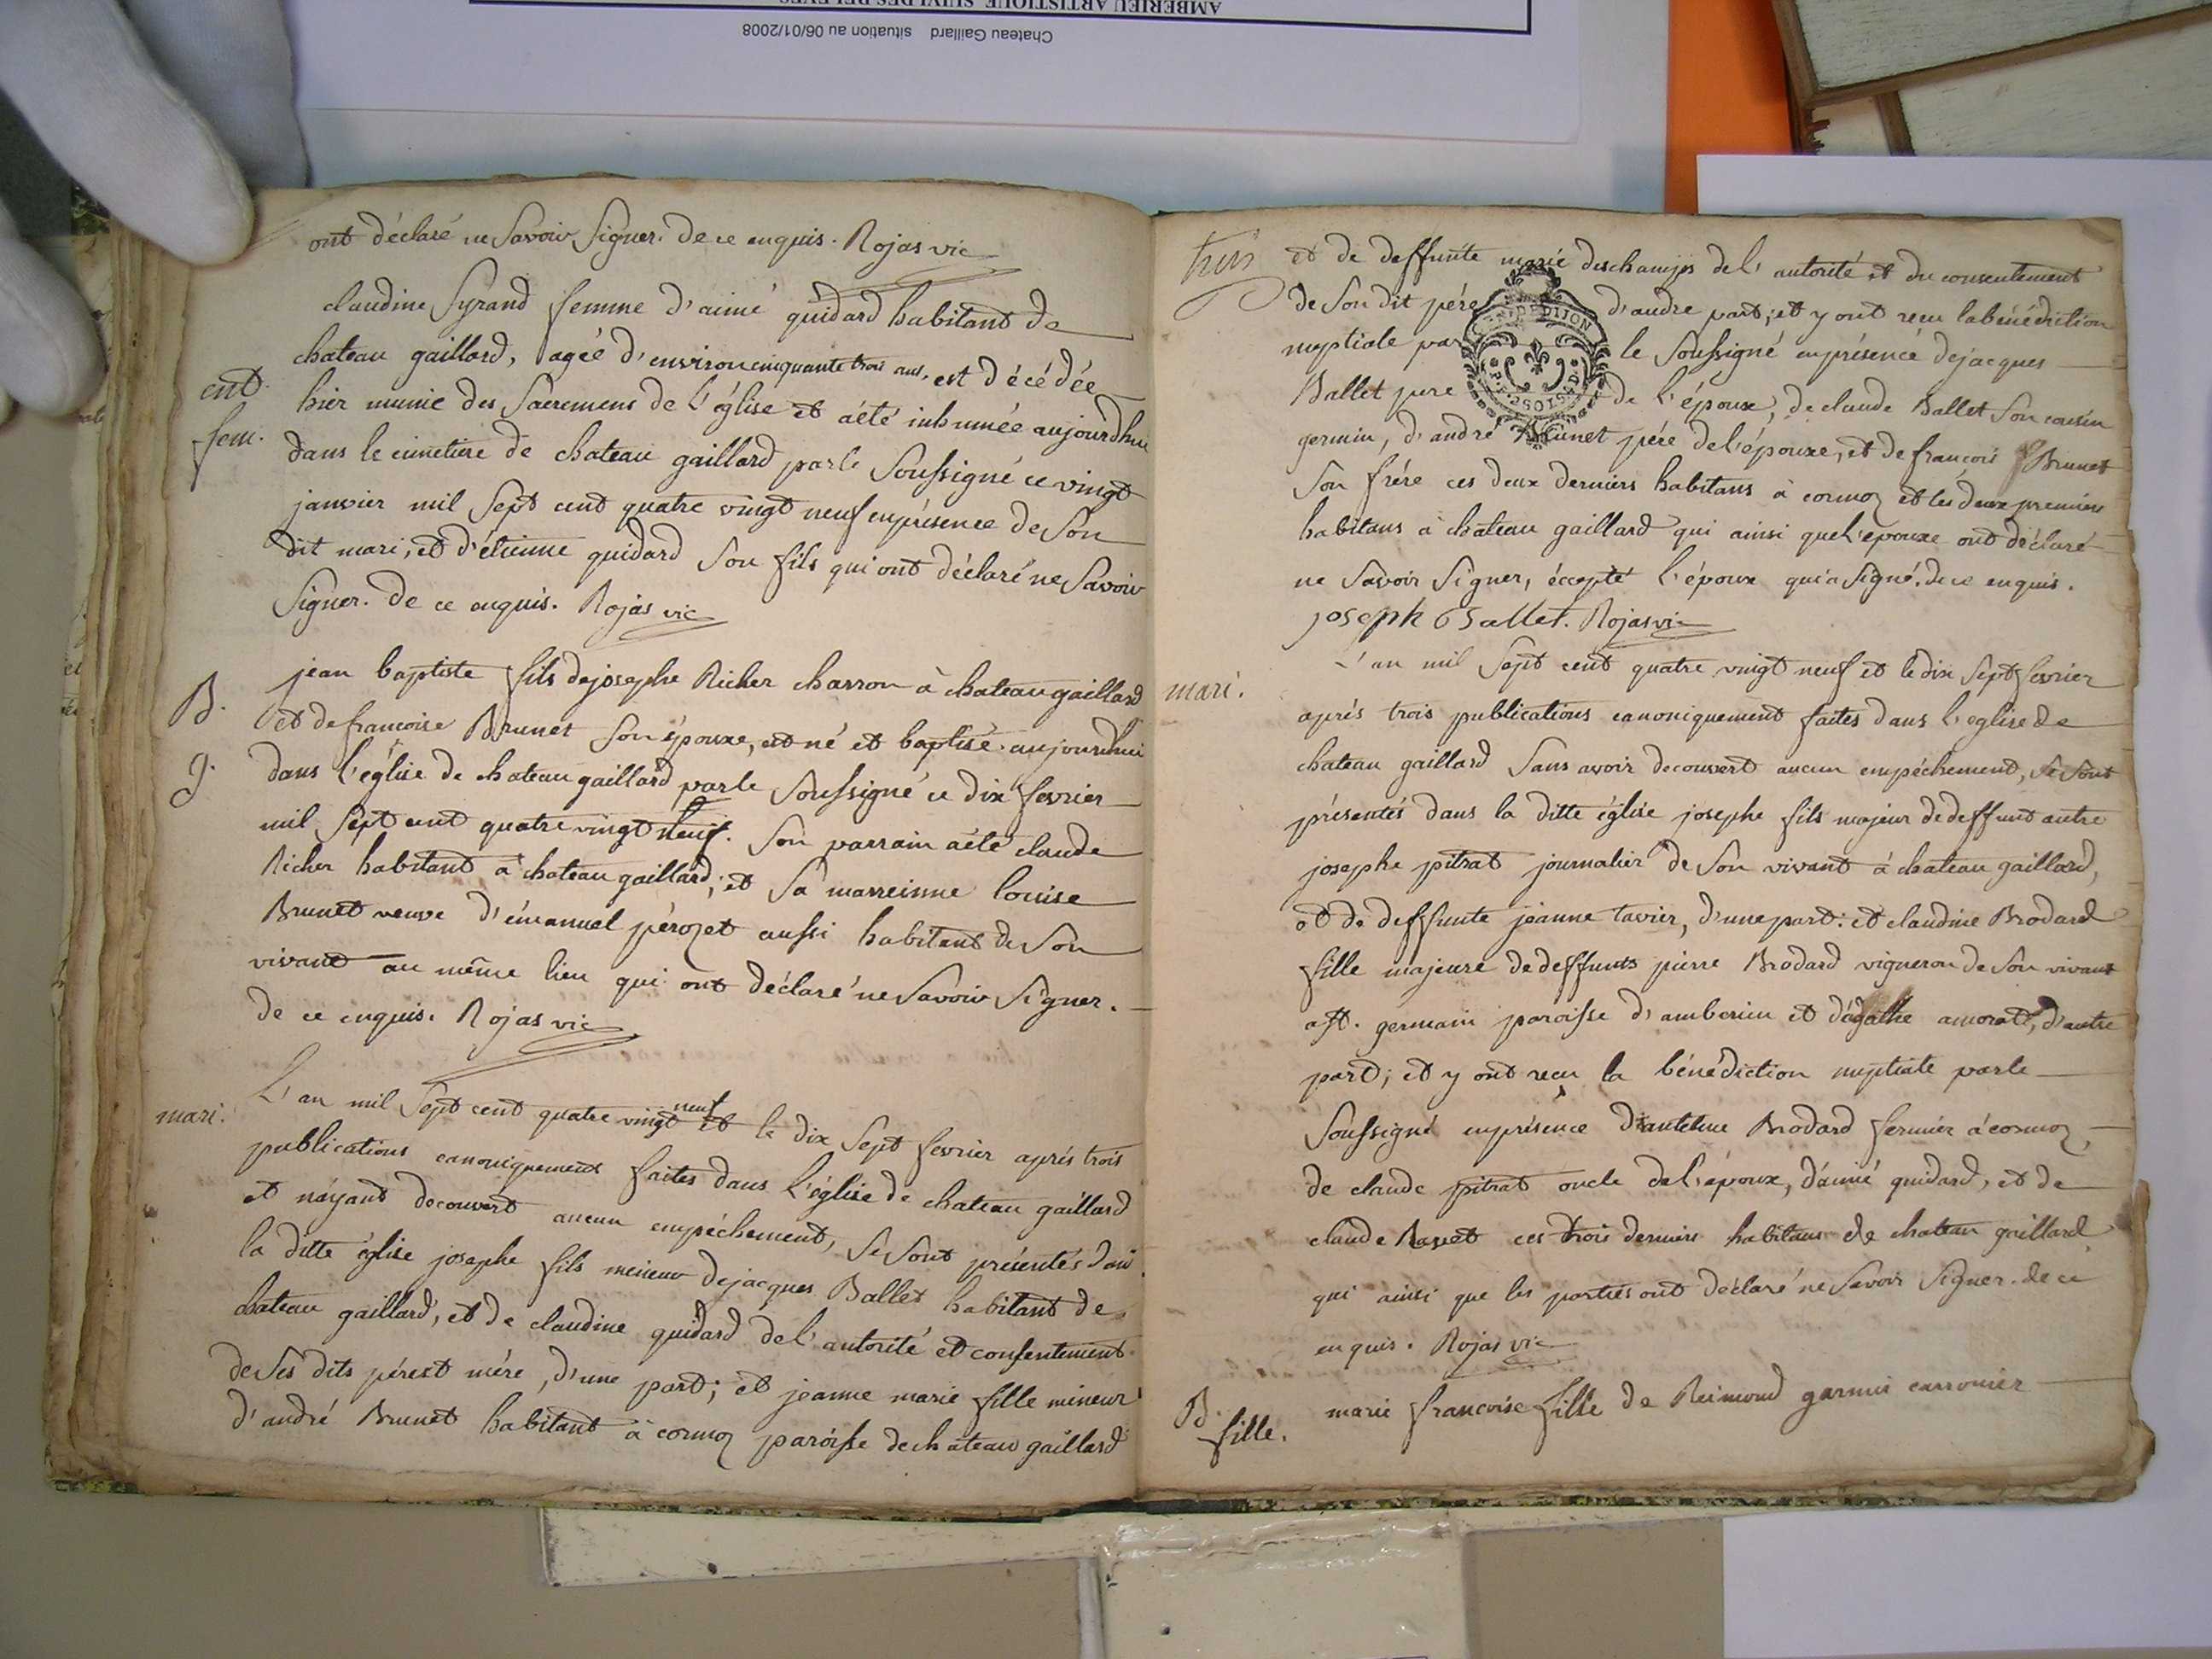 AMBERIEU ARTISTIQUE SUIVI DES RELEVES
Chateau Gaillard situation au 06/01/2008
ont déclaré ne Savoir Signer. de ce enquis. Rojas vic
claudine Syrand femme d'aimé guidard habitant de
chateau gaillard, agée d'environ cinquante trois ans, est décédée
ent. hier munie des Sacremens de L'église et a été inhumée aujourdhui
fem. dans le cimetiere de chateau gaillard par le Soussigné ce vingt
janvier mil Sept cent quatre vingt neuf en présence de Son
dit mari, et d'étienne guidard Son fils qui ont déclaré ne Savoir
Signer. de ce enquis. Rojas vic
B. jean baptiste fils de josephe Richer charron à chateau gaillard
et de francoise Brunet Son épouxe, est né et baptisé aujourdhui
g. dans l'église de chateau gaillard par le Soussigné ce dix fevrier
mil Sept cent quatre vingt neuf. Son parrain a été claude
Richer habitant à chateau gaillard; et Sa marreinne louise
Brunet veuve d'émanuel pérozet aussi habitant de Son
vivant au même lieu qui ont déclaré ne Savoir Signer.
de ce enquis. Rojas vic
mari. L'an mil Sept cent quatre vingt neuf et le dix Sept fevrier aprés trois
publications canoniquement faites dans L'église de chateau gaillard
et n'ayant decouvert aucun empéchement, Se Sont présentés dans
la ditte église josephe fils mineur de jacques Ballet habitant de
chateau gaillard, et de claudine guidard de l'autorité et consentement
de Ses dits pére et mére, d'une part; et jeanne marie fille mineur
d'andré Brunet habitant à cormoz paroisse de chateau gaillard
trois et de deffunte marie deschamps de l'autorité et du consentement
de Son dit pére d'audre part; et y ont recu la bénédiction
GEN. DE DIJON
nuptiale par le Soussigné en présence de jacques
Ballet pere de l'époux, de claude Ballet Son cousin
germin, d'andré Brunet pére de l'épouxe, et de francois Brunet
Son frére ces deux derniers habitans à cormoz et les deux premiers
habitans à chateau gaillard qui ainsi que l'epouxe ont déclaré
ne Savoir Signer, éccepté l'époux qui a Signé. de ce enquis.
joseph Ballet. Rojas vic
mari. L'an mil Sept cent quatre vingt neuf et le dix Sept fevrier
aprés trois publications canoniquement faites dans l'eglise de
chateau gaillard Sans avoir decouvert aucun empéchement, Se Sont
présentés dans la ditte église josephe fils majeur de deffunt autre
josephe pitrat journalier de Son vivant à chateau gaillard,
et de deffunte jeanne tavier, d'une part: et claudine Brodard
fille majeure de deffunts pierre Brodard vigneron de Son vivant
a st. germain paroisse d'amberieu et d'agathe amorat, d'autre
part; et y ont recu la bénédiction nuptiale par le
Soussigné en présence d'antelme Brodard fermier à cormoz,
de claude pitrat oncle de l'époux, d'aimé guidard, et de
claude Ravet ces trois derniers habitans de chateau gaillard
qui ainsi que les parties ont déclaré ne Savoir Signer. de ce
enquis. Rojas vic
B. marie francoise fille de Reimond garnier carronier
fille.